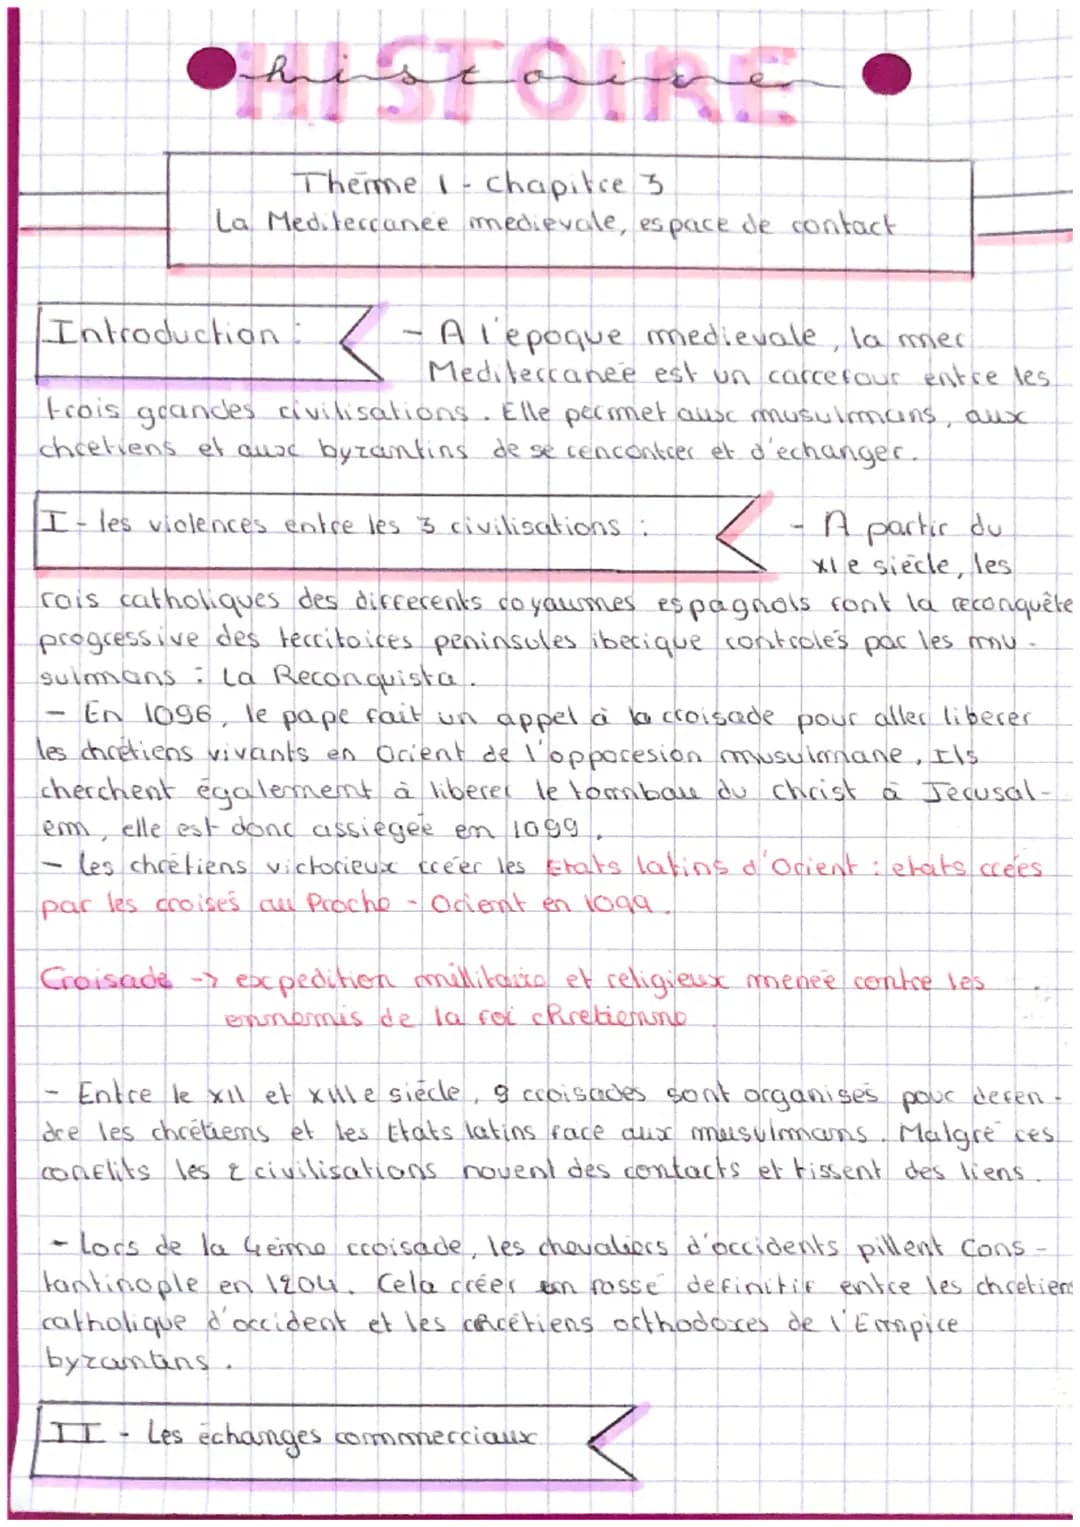 HISTOIRE
histoire
Thème 1 - Chapitre 3
La Mediterranée medievale, espace de contact
Introduction :
- A l'epoque medievale, la mer
Mediterraneé est un carrefour entre les
trois grandes civilisations. Elle permet aux musulmans, aux
chretiens et aux byzantins de se rencontrer et d'echanger.
I - les violences entre les 3 civilisations :
- A partir du
XIe siècle, les
rois catholiques des differents royaumes espagnols font la reconquête
progressive des territoires peninsules iberique controlés par les mu-
sulmans : La Reconquista.
- En 1096, le pape fait un appel à la croisade pour aller liberer
les chrétiens vivants en Orient de l'opporesion musulmane, Ils
cherchent également à liberer le tombau du Christ à Jerusal-
em, elle est donc assiegée en 1099.
- Les chrétiens victorieux créer les Etats latins d'Orient : etats créés
par les croisés au Proche - Orient en 1099.
Croisade -> expedition millitaire et religieux meneé contre les
ennemis de la foi chretienne
- Entre le XII et XIIIe siècle, 8 croisades sont organisés pour defen-
dre les chrétiens et les Etats latins face aux musulmans. Malgré ces
conflits les 2 civilisations nouent des contacts et tissent des liens.
- Lors de la 4eime croisade, les chevaliers d'occidents pillent Cons-
tantinople en 1204. Cela créer un fossé definitif entre les chretiens
catholique d'occident et les chrétiens orthodoxes de l'Empire
byzantins.
II - Les échanges commerciaux